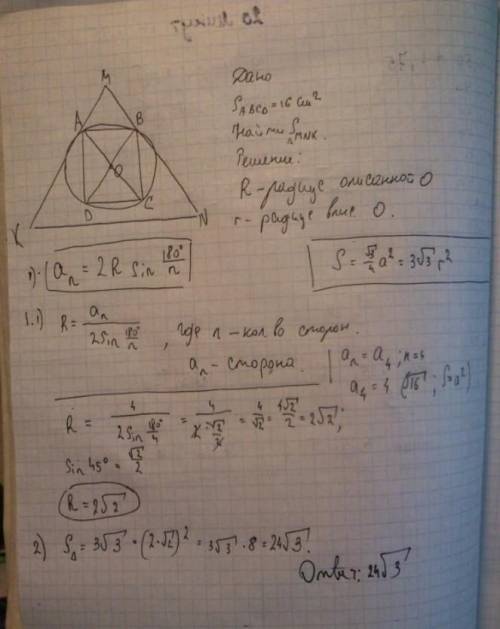 M
Дано
A B
S_ABCD = 16 см²
Найти S_MNK.
O
Решение:
R - радиус описанной O
D C
r - радиус впис O.
K N
1). a_n = 2R sin 180°/n
S = √3/4 a² = 3√3 r²
1.1) R = a_n / (2 sin 180°/n), где n - кол во сторон.
a_n - сторона.
a_n = a_4; n=4
a_4 = 4 (√16; S=a²)
R = 4 / (2 sin 180°/4) = 4 / (2·√2/2) = 4/√2 = 4√2/2 = 2√2;
sin 45° = √2/2
R = 2√2
2) S_Δ = 3√3 · (2·√2)² = 3√3 · 8 = 24√3.
Ответ: 24√3